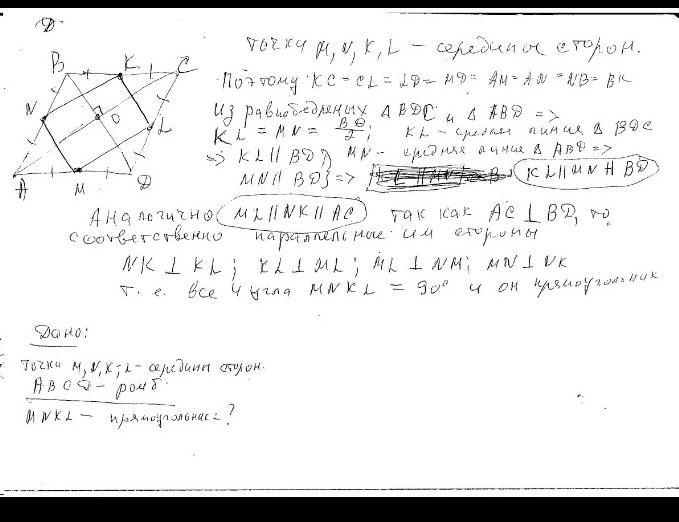 D
точки M, N, K, L – середины сторон.
B K C
Поэтому KC = CL = LD = MD = AM = AN = NB = BK
Из равнобедренных Δ BDC и Δ ABD =>
N O L
KL = MN = BD/2; KL – средняя линия Δ BDC
=> KL || BD } MN – средняя линия Δ ABD =>
A M D
MN || BD } => KL || MN || BD
Аналогично ML || NK || AC так как AC ⊥ BD, то
соответственно параллельные им стороны
NK ⊥ KL; KL ⊥ ML; ML ⊥ NM; MN ⊥ NK
т. е. все 4 угла MNKL = 90° и он прямоугольник
Дано:
точки M, N, K, L – середины сторон.
ABCD – ромб
MNKL – прямоугольник?